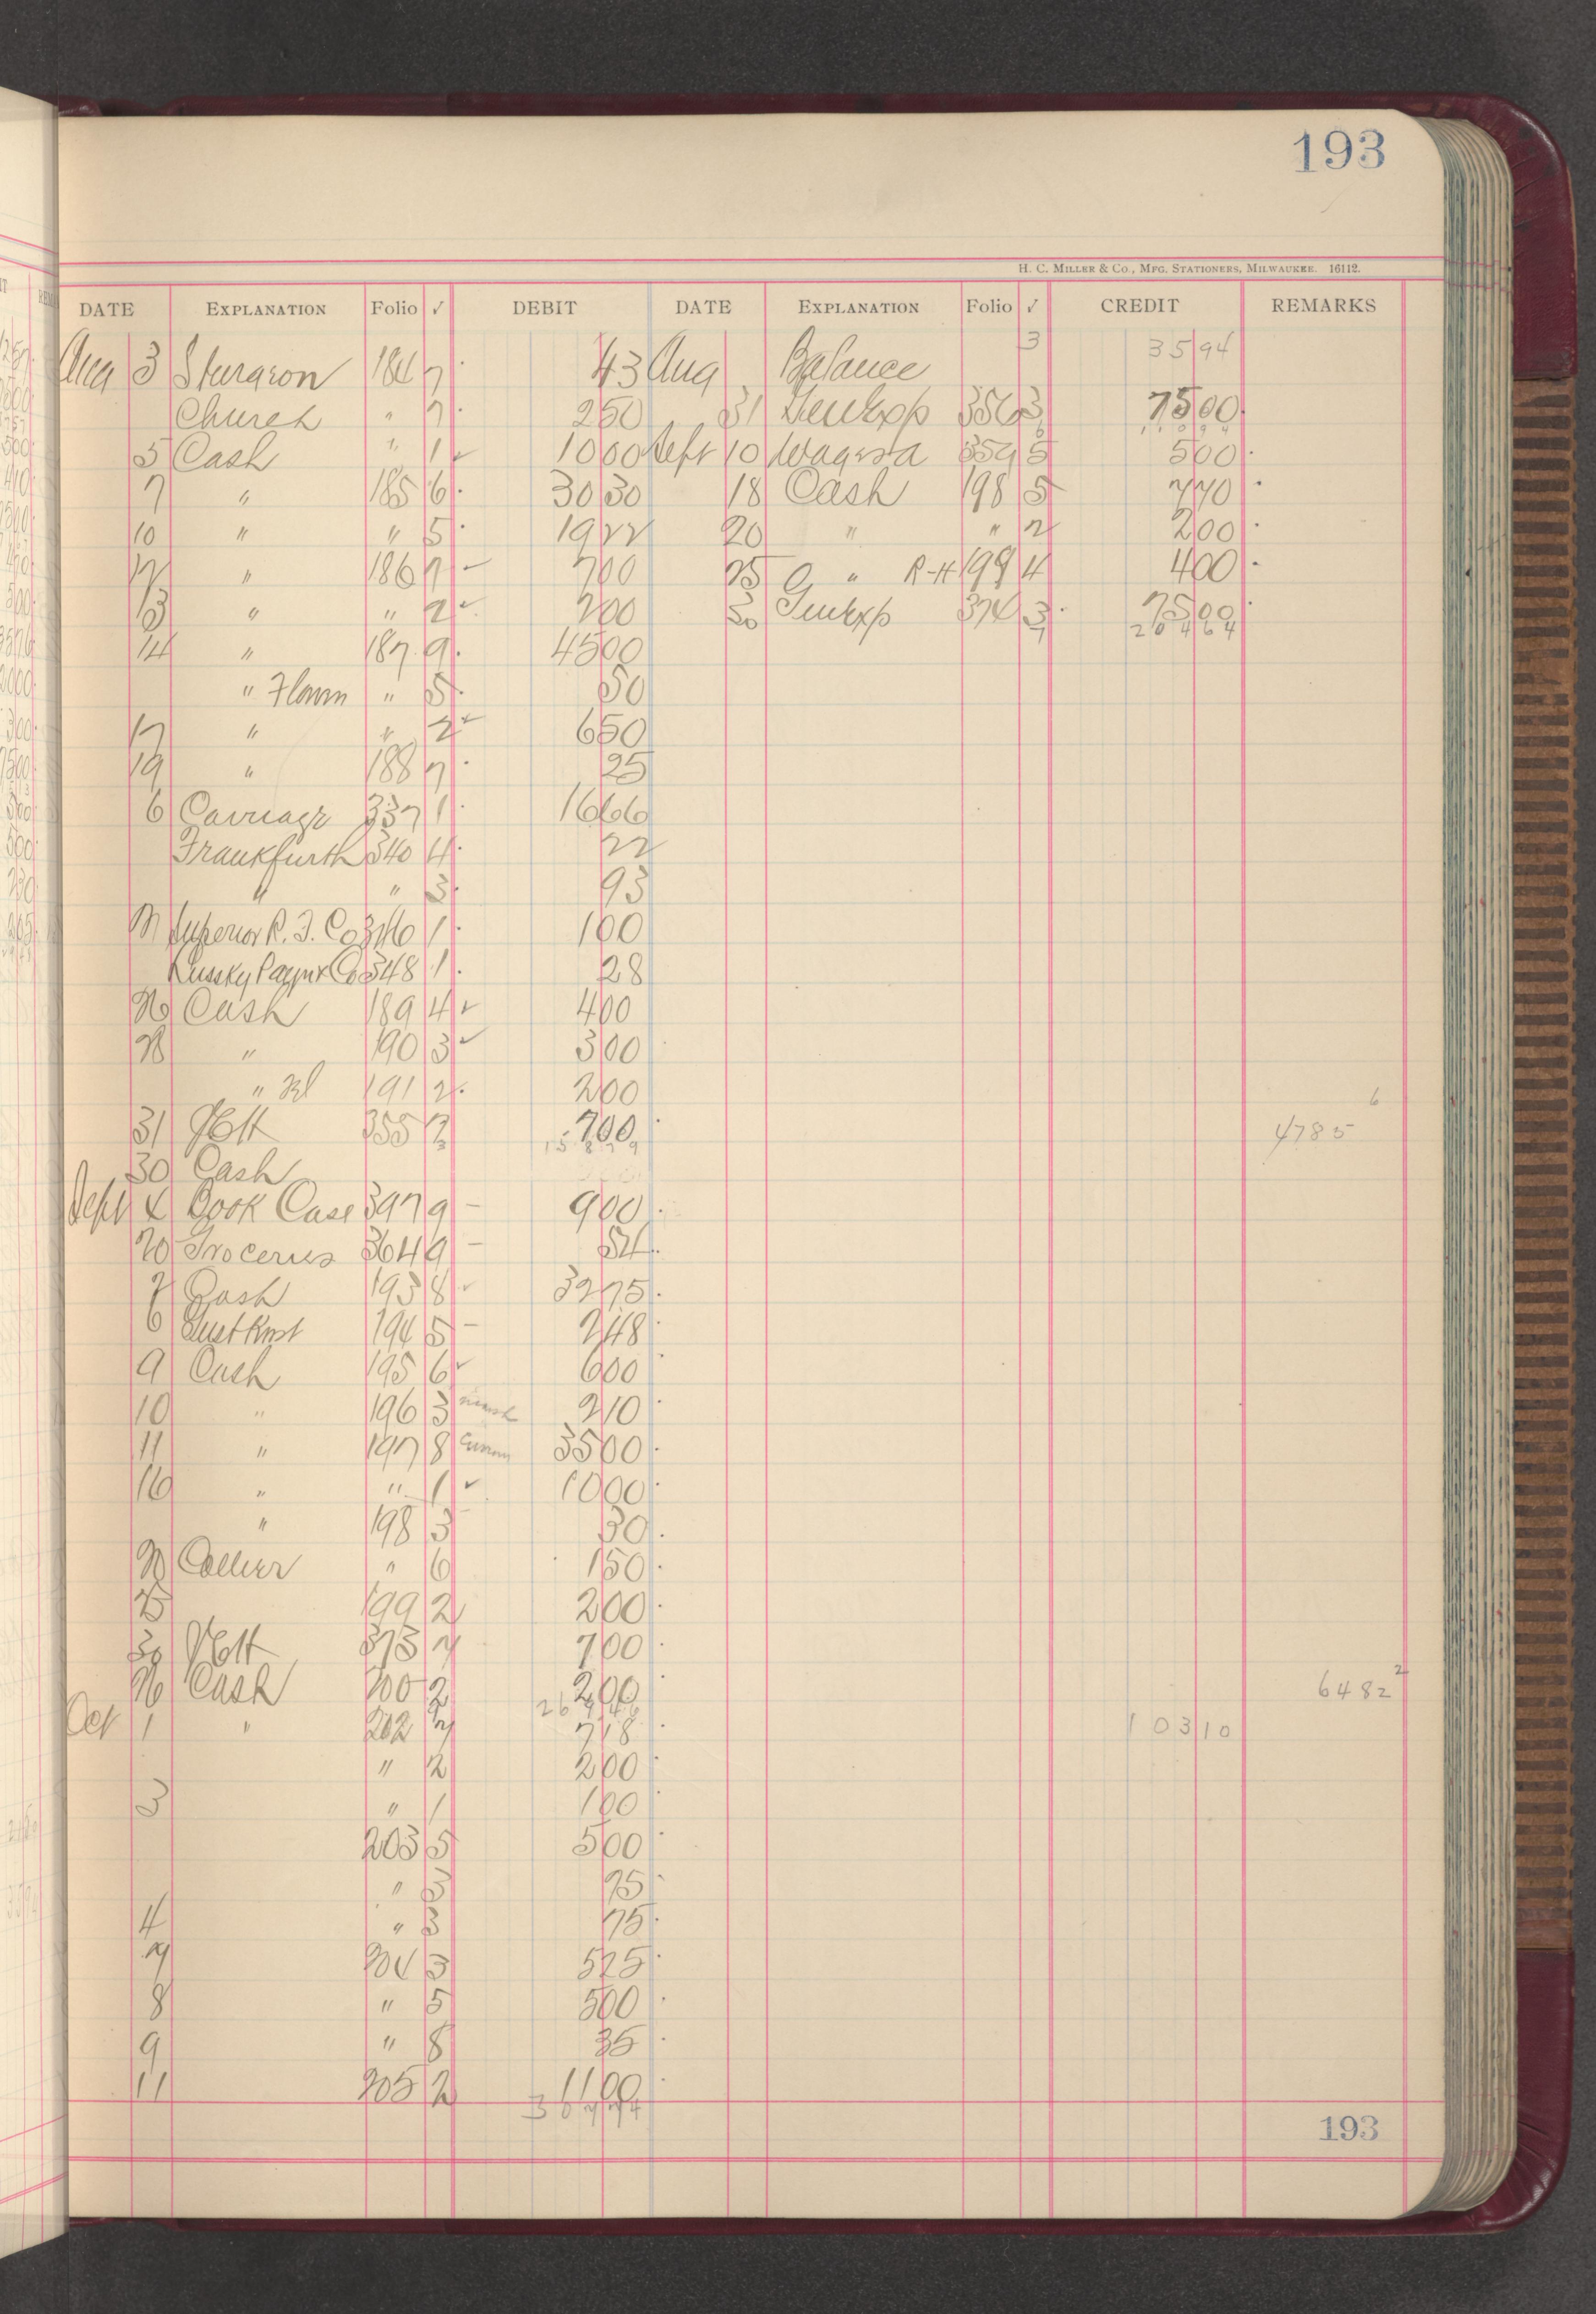 193
H. C. MILLER & CO., MFG. STATIONERS, MILWAUKEE. 16112.
DATE EXPLANATION Folio ✓ DEBIT DATE EXPLANATION Folio ✓ CREDIT REMARKS
Aug 3 Sturgeon 184 7 43 Aug Balance 3 35 94
Church " 7 2 50 31 Gen Exp 356 3 75 00
5 Cash " 1 ✓ 10 00 Sept 10 359 5 5 00
7 " 185 6 30 30 18 Cash 198 5 7 70
10 " " 5 19 22 20 " " 2 2 00
12 " 186 7 ✓ 7 00 25 " R-H 199 4 4 00
13 " " 2 ✓ 2 00 30 Gen Exp 374 3 75 00
204 64
14 " 187 9 45 00
" " 5 50
17 " " 2 ✓ 6 50
19 " 188 7 25
6 Carriage 337 1 16 66
Frankfurth 340 4 22
" " 3 93
Superior R. J. Co 346 1 1 00
348 1 28
26 Cash 189 4 ✓ 4 00
28 " 190 3 ✓ 3 00
" 191 2 2 00
31 355 7 00 4785 6
30 Cash
Sept 4 Book Case 397 9 – 9 00
20 Groceries 364 9 – 54
7 Cash 193 8 ✓ 32 75
6 194 5 – 2 48
9 Cash 195 6 ✓ 6 00
10 " 196 3 2 10
11 " 197 8 35 00
16 " " 1 ✓ 10 00
" 198 3 30
Collier " 6 1 50
25 199 2 2 00
30 373 7 00
26 Cash 200 2 2 00 6482 2
Oct 1 " 202 7 18 103 10
" 2 2 00
3 " 1 1 00
203 5 5 00
" 3 75
4 " 3 75
7 204 3 5 25
8 " 5 5 00
9 " 8 35
11 205 2 11 00
193